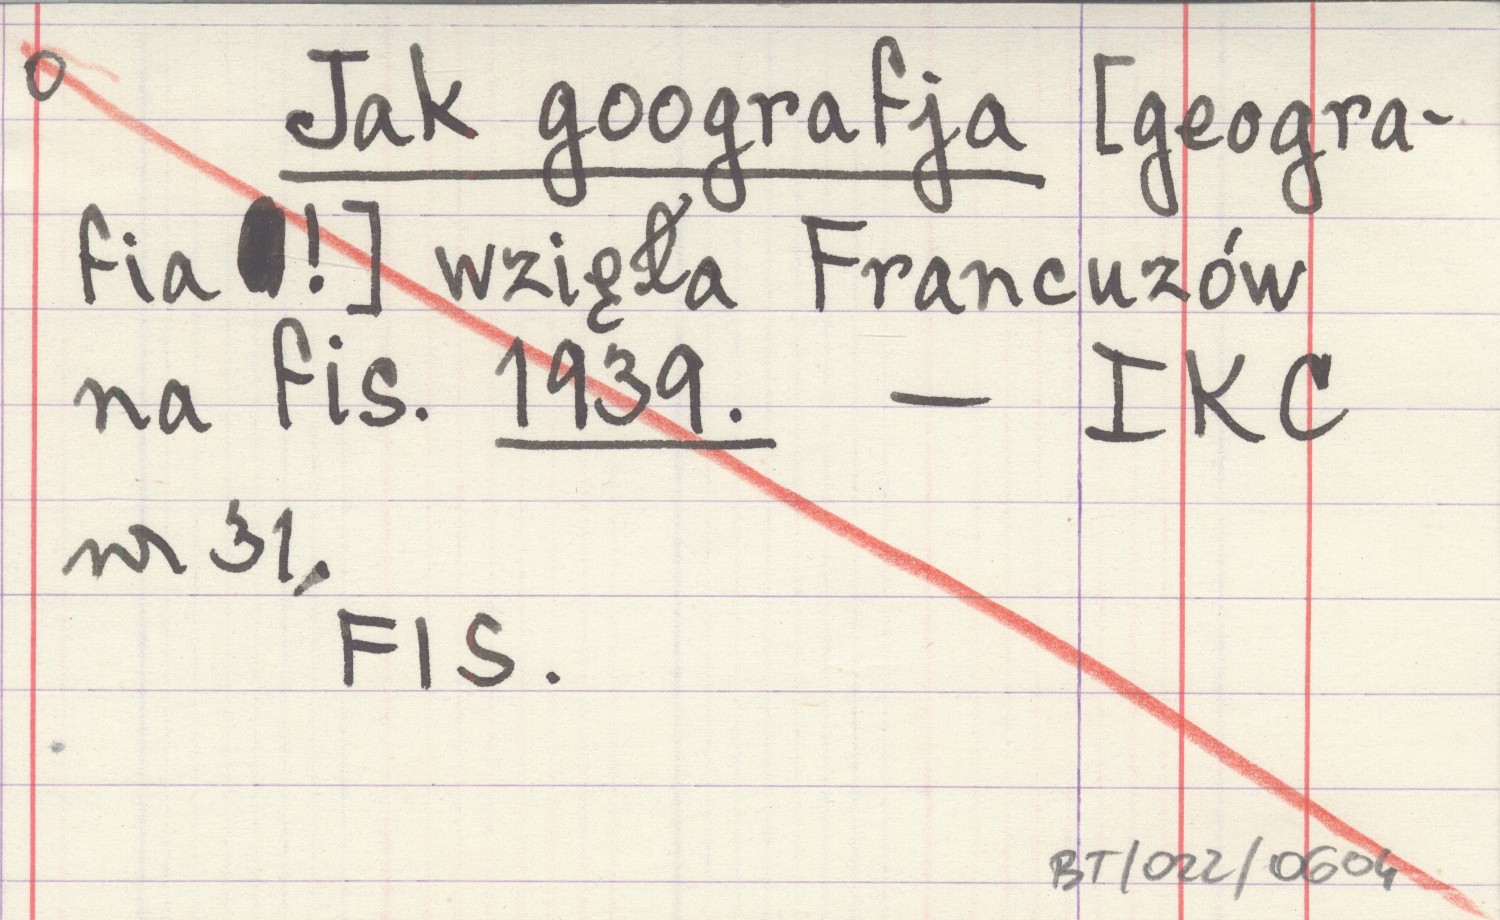 O
Jak googra fja [geogra-
fia !] wzięła Francuzów
na fis. 1939. — IKC
nr 31,.
FIS.
BT/022/0604